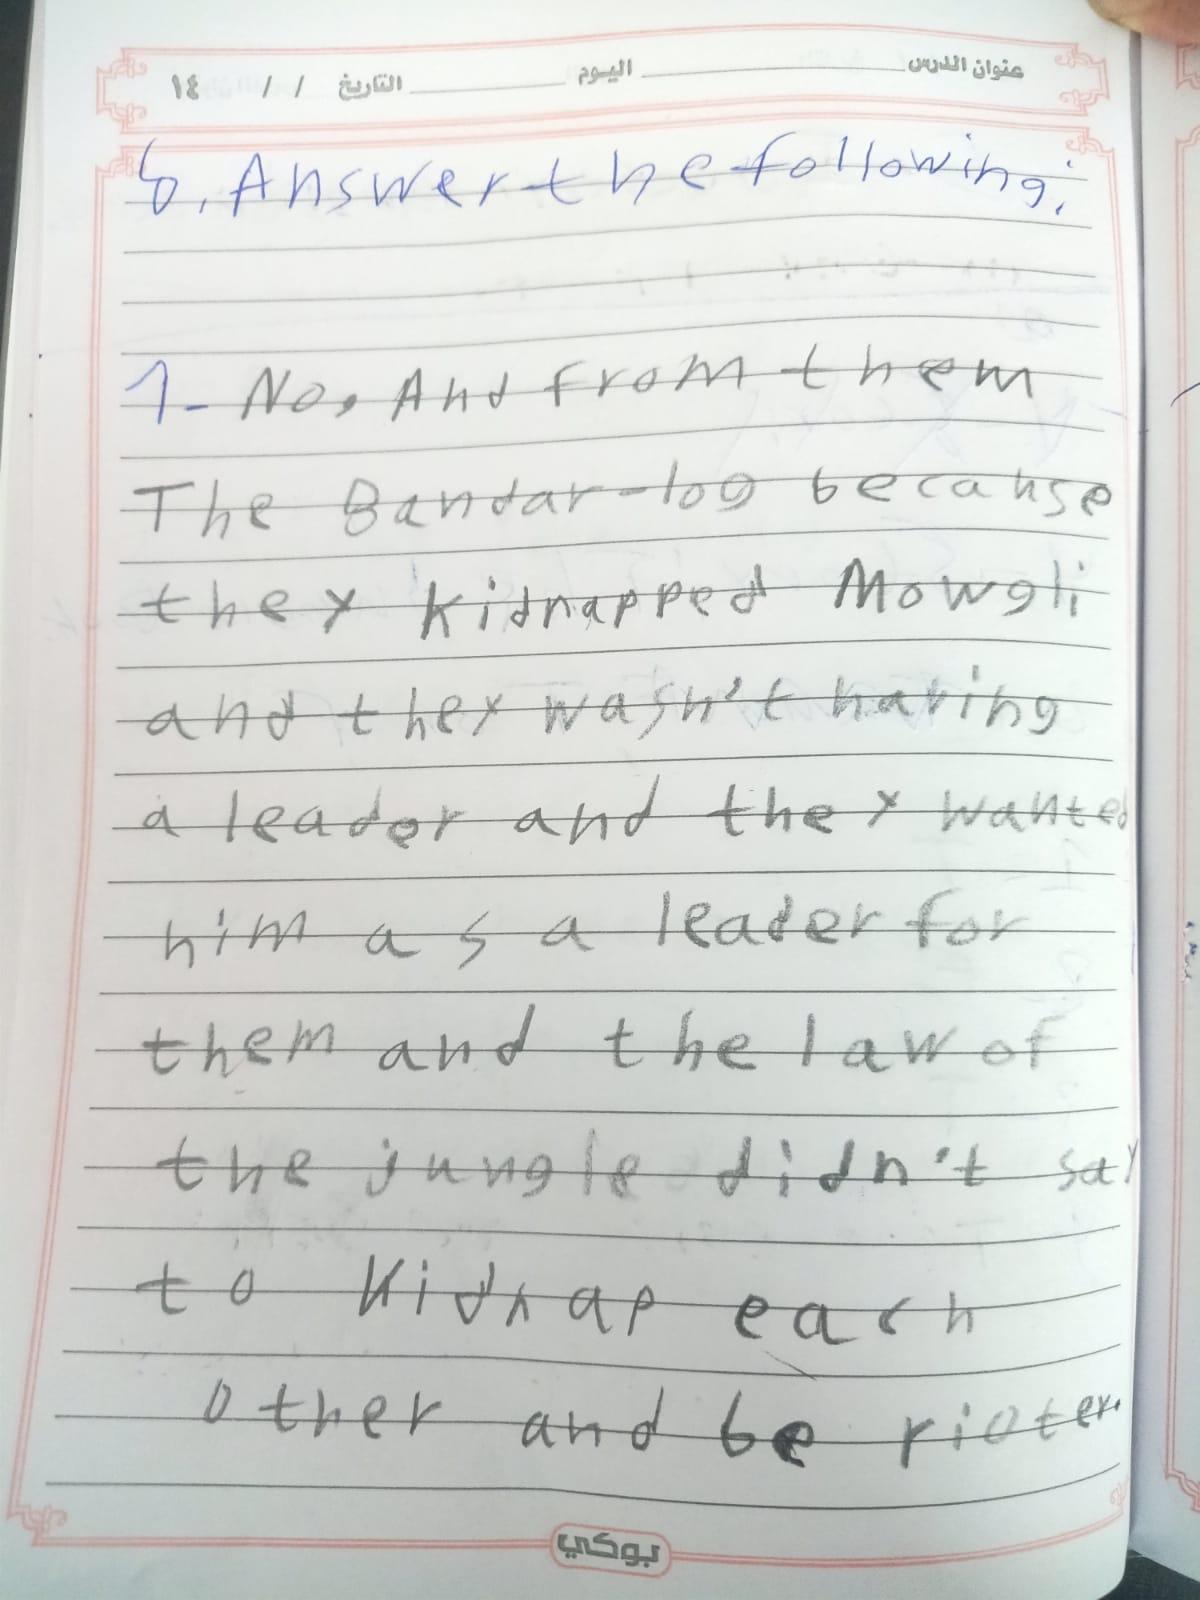 عنوان الدرس اليوم التاريخ / / ١٤
6. Answer the following:
1- No, And from them
The Bandar-log because
they kidnapped Mowgli
and they wasn't having
a leader and they wanted
him as a leader for
them and the law of
the jungle didn't say
to kidnap each
other and be rioter.
بوكي